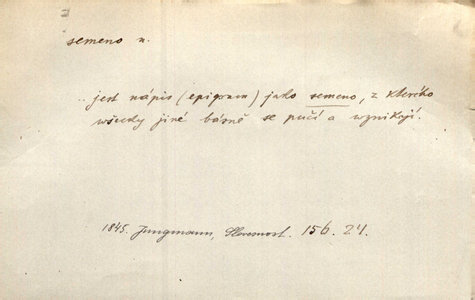 semeno n.
.. jest nápis (epigram) jako semeno, z kterého
všecky jiné básně se pučí a wznikají.
1845. Jungmann, Slovesnost. 156. 24.